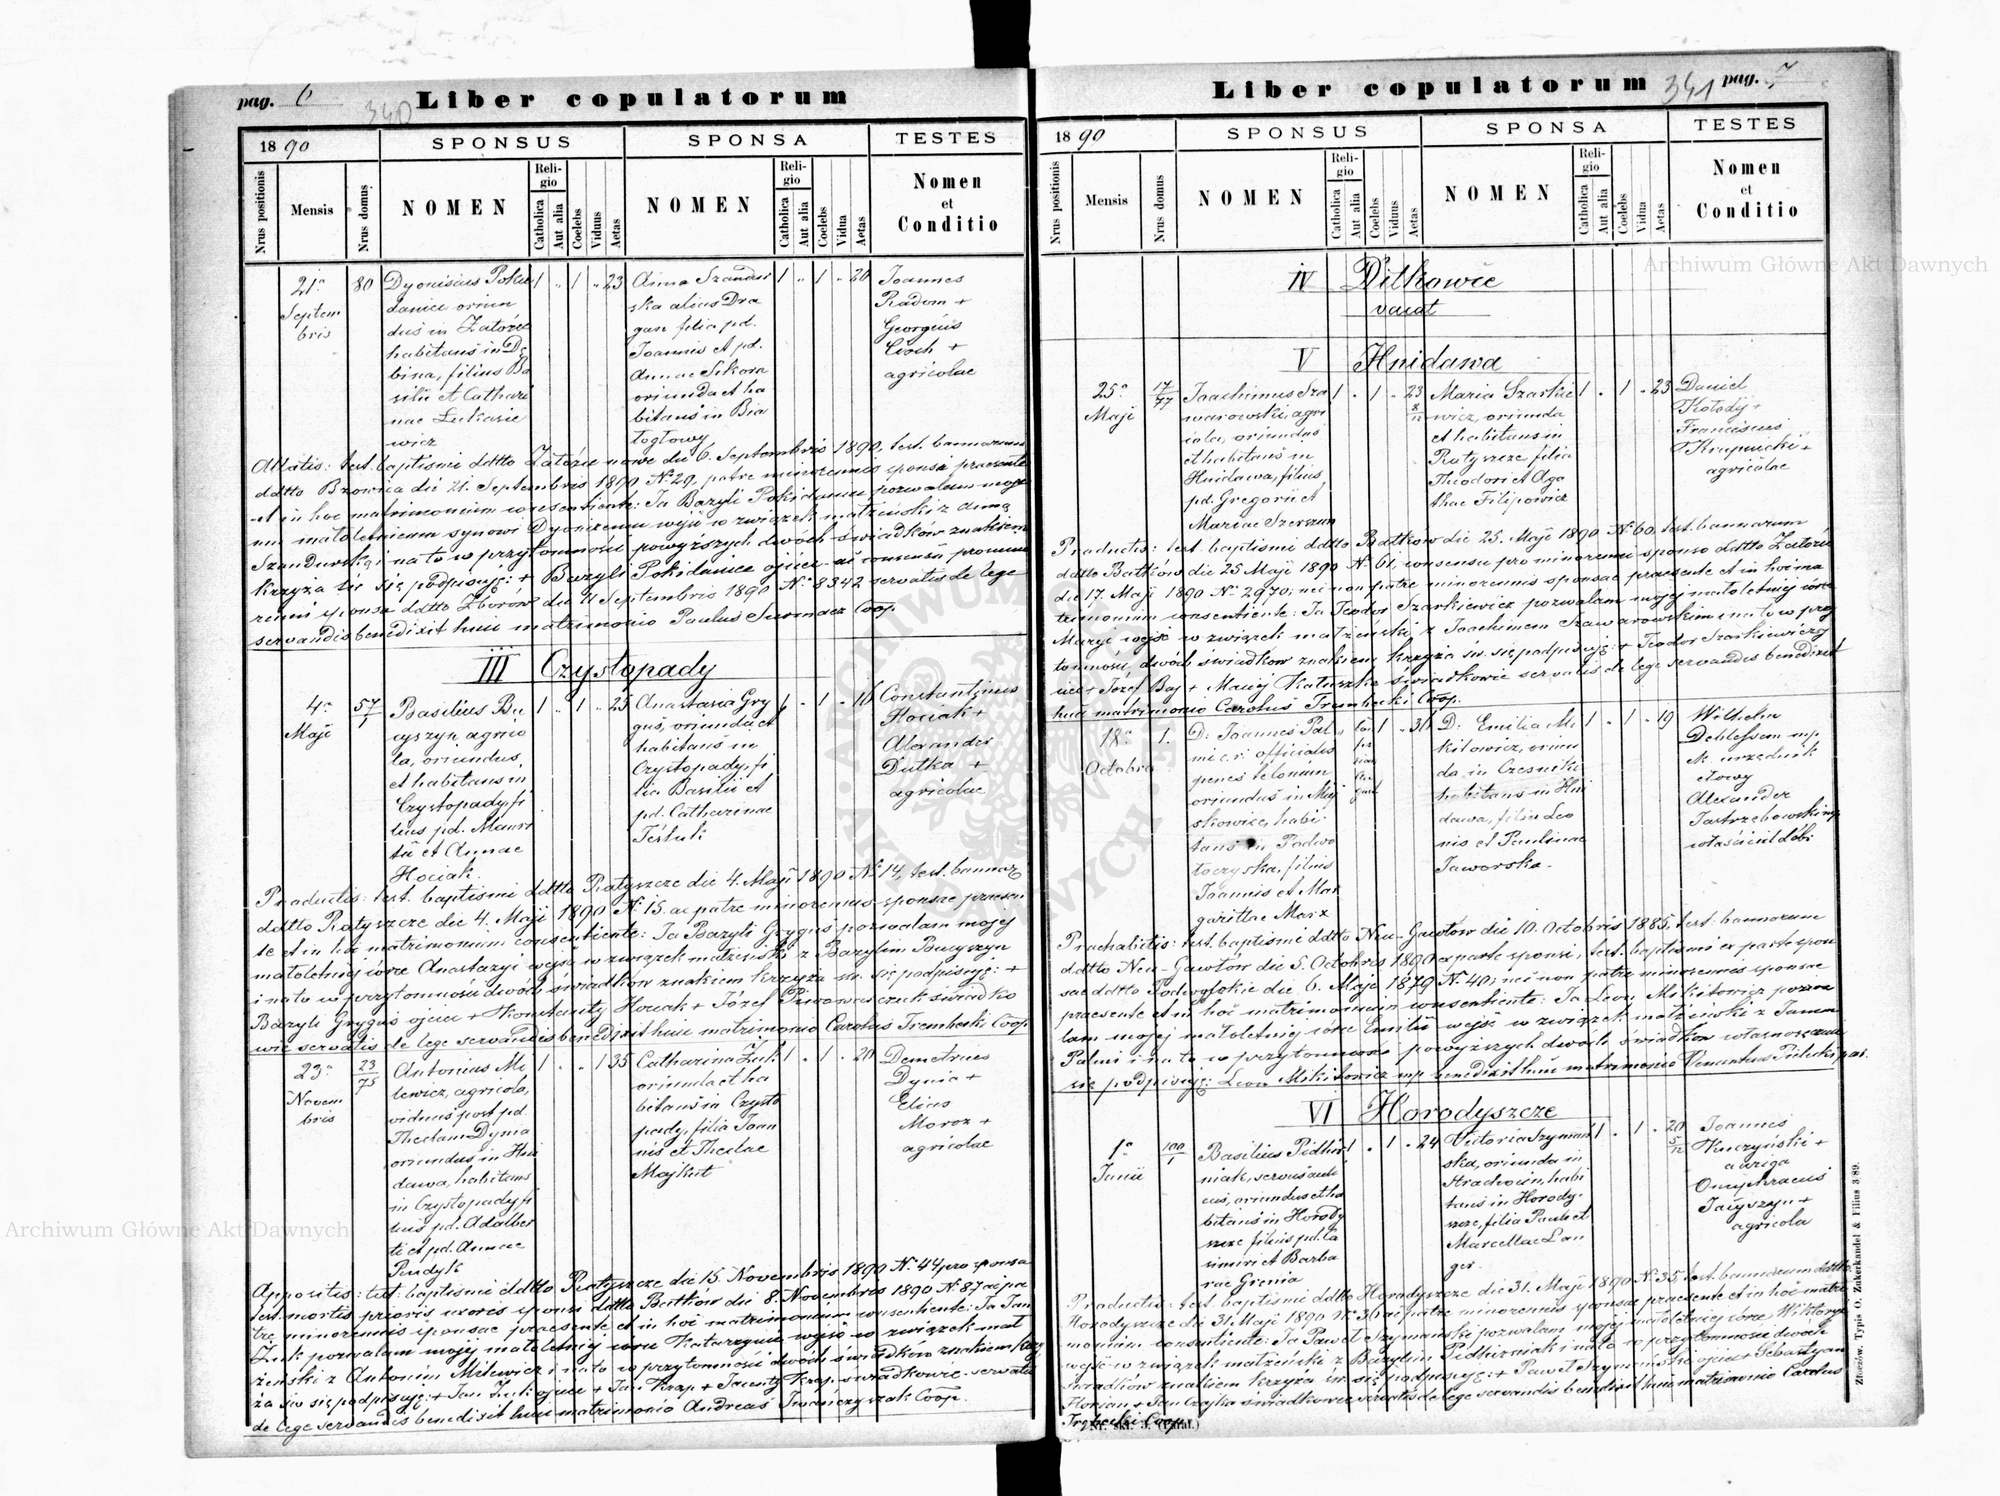 pag. 6
340
Liber copulatorum
1890
SPONSUS
SPONSA
TESTES
Nrus positionis
Mensis
Nrus domus
NOMEN
Religio
Catholica
Aut alia
Coelebs
Viduus
Aetas
NOMEN
Religio
Catholica
Aut alia
Coelebs
Vidua
Aetas
Nomen
et
Conditio
21a
Septem
bris
80
Dyonisius Poki
danici oriun
dus in Zatorze
habitans in Dę
bina, filius Ba
silii et Cathari
nae Lukasie
wicz
1 " 1 " 23
Anna Szandur
ska alias Dra
gan filia pd.
Joannis et pd.
Annae Sikora
oriunda et ha
bitans in Bia
łogłowy
1 " 1 " 20
Joannes
Radom +
Georgius
Cioch +
agricolae
Allatis: test. baptismi ddtto Zatorze nowe die 6. Septembris 1890, test. bannorum
ddtto Bzowica die 21. Septembris 1890 N. 29, patre minorennis sponsi praesente
et in hoc matrimonium consentiente: Ja Bazyli Pokidaniec pozwalam moje
mu małoletniemu synowi Dyonizemu wejść w związek małżeński z Anną
Szandurską i na to w przytomności powyższych dwóch świadków znakiem
krzyża św się podpisuję: + Bazyli Pokidaniec ojciec ac consensu pro mino
renni sponsa ddtto Zborów die 11 Septembris 1890 N. 8342 servatis de lege
servandis benedixit huic matrimonio Paulus Surmacz Coop.
III Czystopady
4a
Maji
57
1
Basilius Bu
cyszyn agrico
la, oriundus
et habitans in
Czystopady, fi
lius pd. Mauri
tii et Annae
Hociak.
1 " 1 " 25
Anastasia Gry
guś, oriunda et
habitans in
Czystopady, fi
lia Basilii et
pd. Catharinae
Tesluk
1 " 1 " 16
Constantinus
Hociak +
Alexander
Dutka +
agricolae
Productis: test. baptismi ddtto Ratyszcze die 4. Maji 1890 N. 14, test. bannor.
ddtto Ratyszcze die 4. Maji 1890 N. 15. ac patre minorennis sponsae praesen
te et in hoc matrimonium consentiente: Ja Bazyli Gryguś pozwalam mojej
małoletniej córce Anastazyi wejść w związek małżeński z Bazylim Bucyszyn
i na to w przytomności dwóch świadków znakiem krzyża św. się podpisuję: +
Bazyli Gryguś ojciec + Konstanty Hociak + Józef Piwowarczuk świadko
wie servatis de lege servandis benedixit huic matrimonio Carolus Trembecki Coop
23a
Novem
bris
23
75
Antonius Mi
lewicz, agricola,
viduus post pd.
Theclam Dyma
oriundus in Hni
dawa, habitans
in Czystopady, fi
lius pd. Adalber
ti et pd. Annae
Pindyk
1 " " 1 35
Catharina Żuk
oriunda et ha
bitans in Czysto
pady, filia Joan
nis et Theclae
Majkut
1 " 1 " 20
Demetrius
Dynia +
Elias
Moroz +
agricolae
Appositis: test. baptismi ddtto Ratyszcze die 15. Novembris 1890 N. 44 pro sponsa
test. mortis prioris uxoris sponsi ddtto Batków die 8. Novembris 1890 N. 87 ac pa
tre minorennis sponsae praesente et in hoc matrimonium consentiente: Ja Jan
Żuk pozwalam mojej małoletniej córce Katarzynie wejść w związek mał
żeński z Antonim Milewicz i na to w przytomności dwóch świadków znakiem krzy
ża św się podpisuję: + Jan Żuk ojciec + Jan Krap + Jacenty Krap świadkowie servatis
de lege servandis benedixit huic matrimonio Andreas Iwańczyszak Coop.
Liber copulatorum
341 pag. 7
1890
SPONSUS
SPONSA
TESTES
Nrus positionis
Mensis
Nrus domus
NOMEN
Religio
Catholica
Aut alia
Coelebs
Viduus
Aetas
NOMEN
Religio
Catholica
Aut alia
Coelebs
Vidua
Aetas
Nomen
et
Conditio
IV Ditkowce
vacat
V Hnidawa
25a
Maji
17
77
Joachimus Sza
warowski, agri
cola, oriundus
et habitans in
Hnidawa, filius
pd. Gregorii et
Mariae Szerszun
1 " 1 " 23
8
12
Maria Szarkie
wicz, oriunda
et habitans in
Ratyszcze, filia
Theodori et Aga
thae Filipowicz
1 " 1 " 23
Daniel
Kołodij +
Franciscus
Krupnicki +
agricolae
Productis: test. baptismi ddtto Batków die 25. Maji 1890 N. 60, test. bannorum
ddtto Batków die 25 Maji 1890 N. 61, consensu pro minorenni sponso ddtto Załoźce
die 17. Maji 1890 N. 2970, nec non patre minorennis sponsae praesente et in hoc ma
trimonium consentiente: Ja Teodor Szarkiewicz pozwalam mojej małoletniej córce
Maryi wejść w związek małżeński z Joachimem Szawarowskim i na to w przy
tomności dwóch świadków znakiem krzyża św. się podpisuję: + Teodor Szarkiewicz oj
ciec + Józef Baj + Maciej Kałuszka świadkowie servatis de lege servandis benedixit
huic matrimonio Carolus Trembecki Coop.
18a
Octobris
1.
D. Joannes Pal
mi c. r. officialis
penes telonium
oriundus in Maj
skowice, habi
tans in Podwo
łoczyska, filius
Joannis et Mar
garittae Marx
1 " 31
D. Emilia Mi
kitowicz, oriun
da in Czesniki
habitans in Hni
dawa, filia Leo
nis et Paulinae
Jaworska.
1 " 1 " 19
Wilhelm
Deblessem mp
k. urzędnik
cłowy
Alexander
Jastrzębowski mp
właściciel dóbr
Praehabitis: test. baptismi ddtto Neu-Gawłów die 10. Octobris 1885, test. bannorum
ddtto Neu-Gawłów die 5. Octobris 1890 ex parte sponsi, test. baptismi ex parte spon
sae ddtto Podwysokie die 6. Maji 1879 N. 40, nec non patre minorennis sponsae
praesente et in hoc matrimonium consentiente: Ja Leon Mikitowicz pozwa
lam mojej małoletniej córce Emilii wejść w związek małżeński z Janem
Palmi i na to w przytomności powyższych dwóch świadków własnoręcznie
się podpisuję: Leon Mikitowicz mp benedixit huic matrimonio Venantius Pilecki par.
VI Horodyszcze
1a
Junii
100
1
Basilius Pidhir
niak, servus auli
cus, oriundus et ha
bitans in Horody
szcze filius pd. Ca
simiri et Barba
rae Grenia
1 " 1 " 24
Victoria Szymań
ska, oriunda in
Hradvocin, habi
tans in Horody-
szcze, filia Pauli et
Marcellae Lan
ger.
1 " 1 " 20
5
12
Joannes
Kuczyński +
auriga
Onuphraeus
Jacyszyn +
agricola
Productis: test. baptismi ddtto Horodyszcze die 31. Maji 1890 N. 35, test. bannorum ddtto
Horodyszcze die 31. Maji 1890 N. 36 ac patre minorennis sponsae praesente et in hoc matri
monium consentiente: Ja Paweł Szymański pozwalam mojej małoletniej córce Wiktoryi
wejść w związek małżeński z Bazylim Pidhirniak i na to w przytomności dwóch
świadków znakiem krzyża św się podpisuję: + Paweł Szymański ojciec + Sebastyan
Florjan + Jan Czajka świadkowie servatis de lege servandis benedixit huic matrimonio Carolus
Trembecki Coop.
Nr. skł. 3. (Parai.)
Złoczów. Typis O. Zukerkandel & Filius 3/89.
Archiwum Główne Akt Dawnych
Archiwum Główne Akt Dawnych